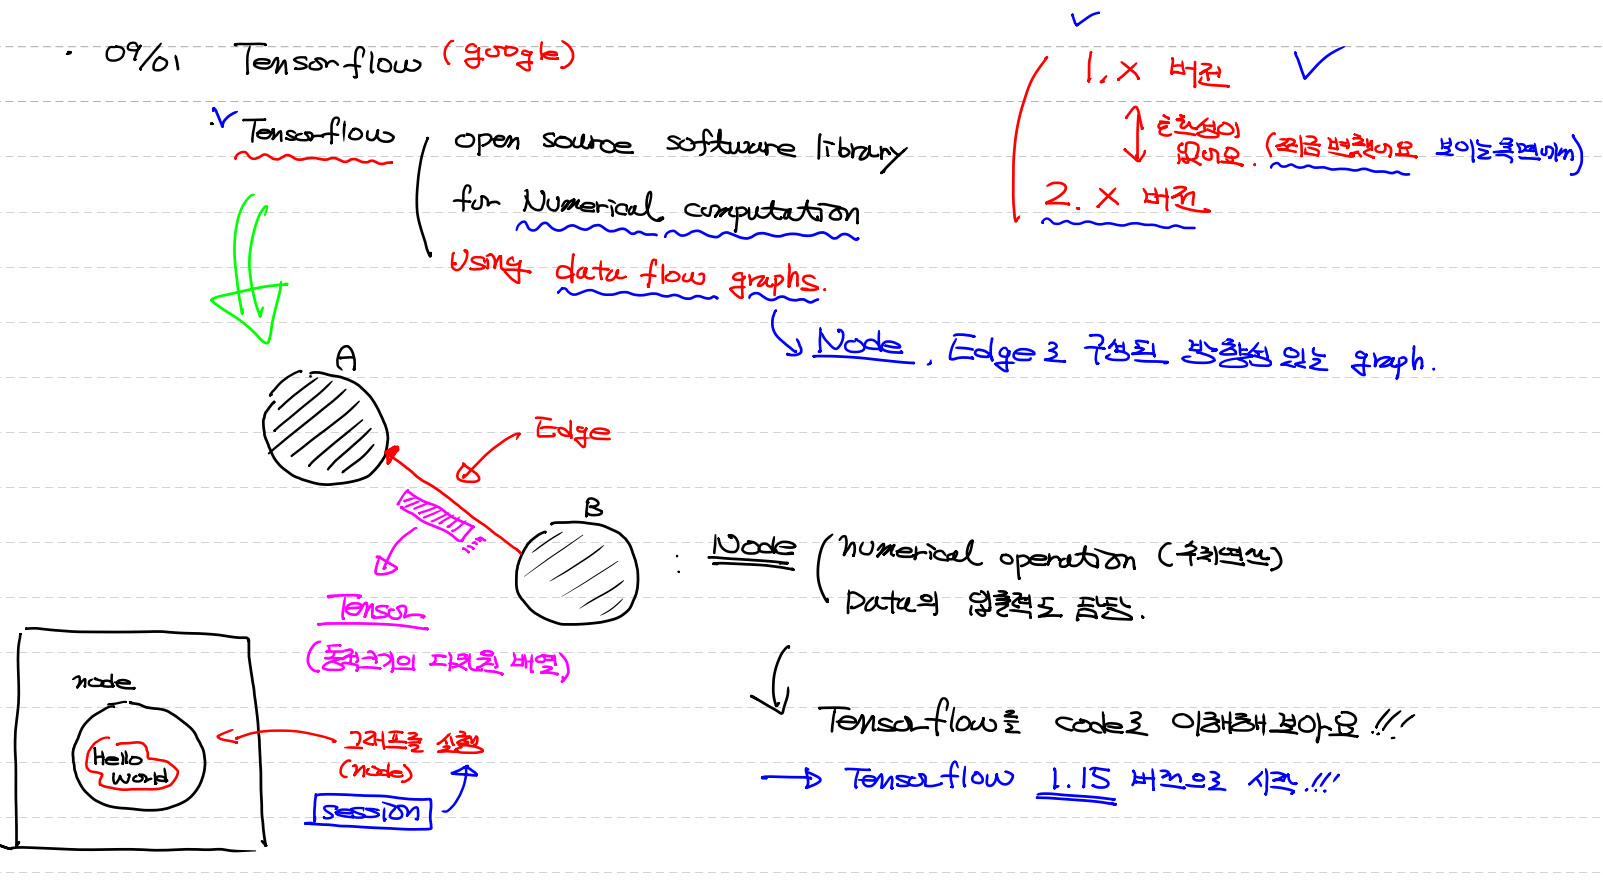 · 09/01 Tensorflow (google)
Tensorflow
open source software library
for Numerical computation
Using data flow graphs.
1.x 버전
호환성이
없어요. (쪼금 변했어요 보이는측면에서)
2.x 버전
Node, Edge로 구성된 방향성 있는 graph.
A
Edge
B
Tensor
(동적크기의 다차원 배열)
: Node
numerical operation (수치연산)
Data의 입출력도 담당.
Tensorflow를 code로 이해해보아요!!!
→ Tensorflow 1.15 버전으로 시작!!!
node
Hello
world
그래프를 실행
(node)
session